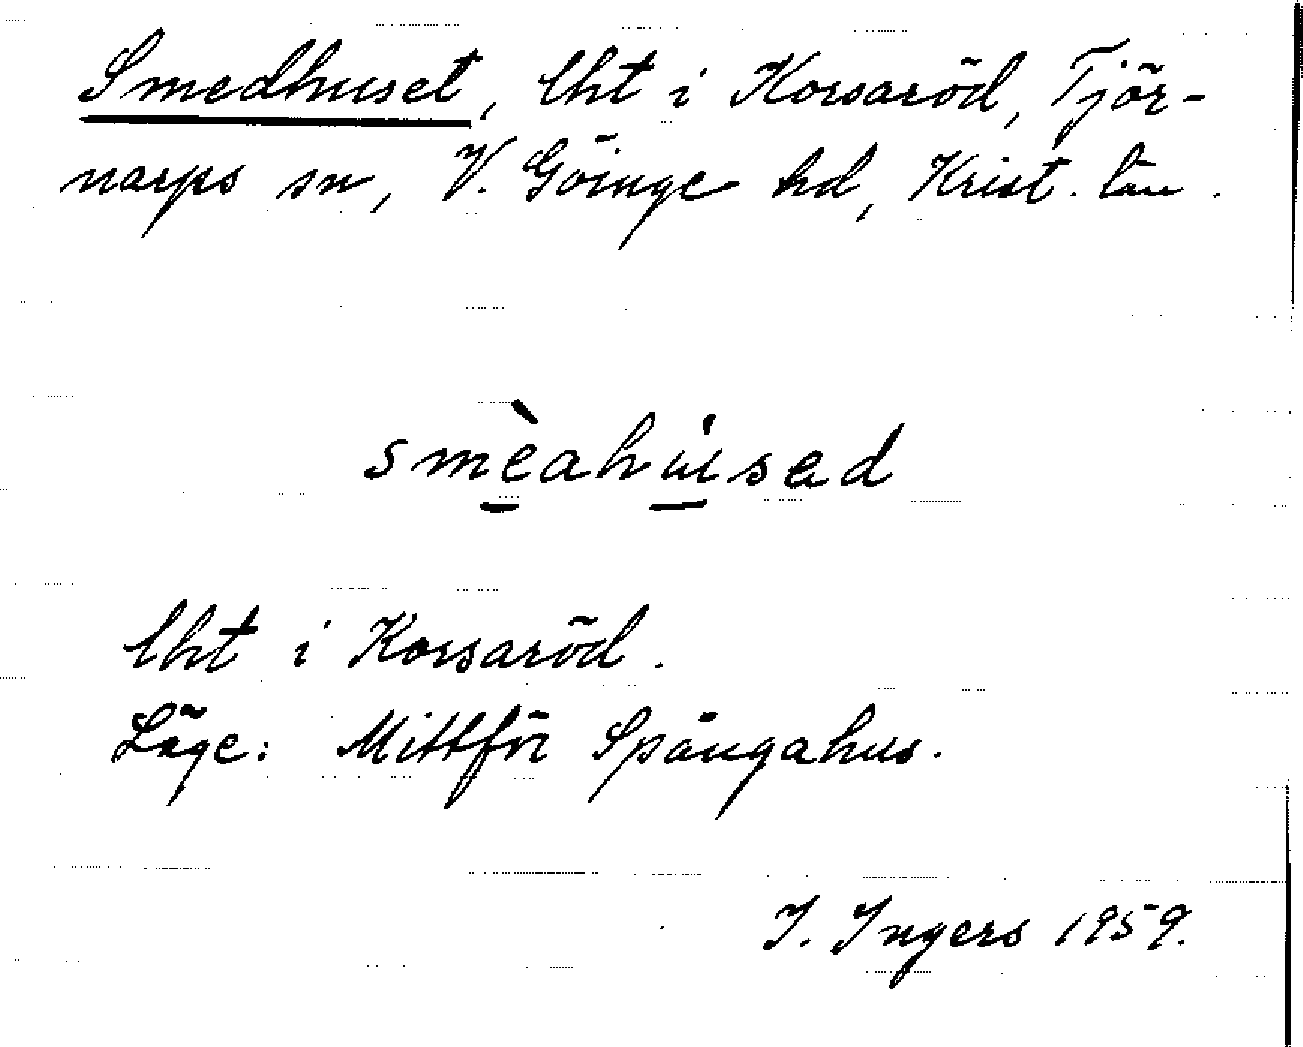 Smedhuset, lht i Korsaröd, Tjör-
narps sn, V. Göinge hd, Krist. län.
smèahúsad
lht i Korsaröd.
Läge: Mittför Spångahus.
I. Ingers 1959.